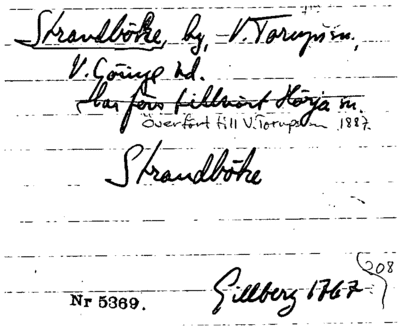 Strandböke, by, V. Torups sn.,
V. Göinge hd.
har förr tillhört Hörja sn.
Överfört till V. Torups sn 1887.
Strandböke
208
Gillberg 1767
Nr 5369.